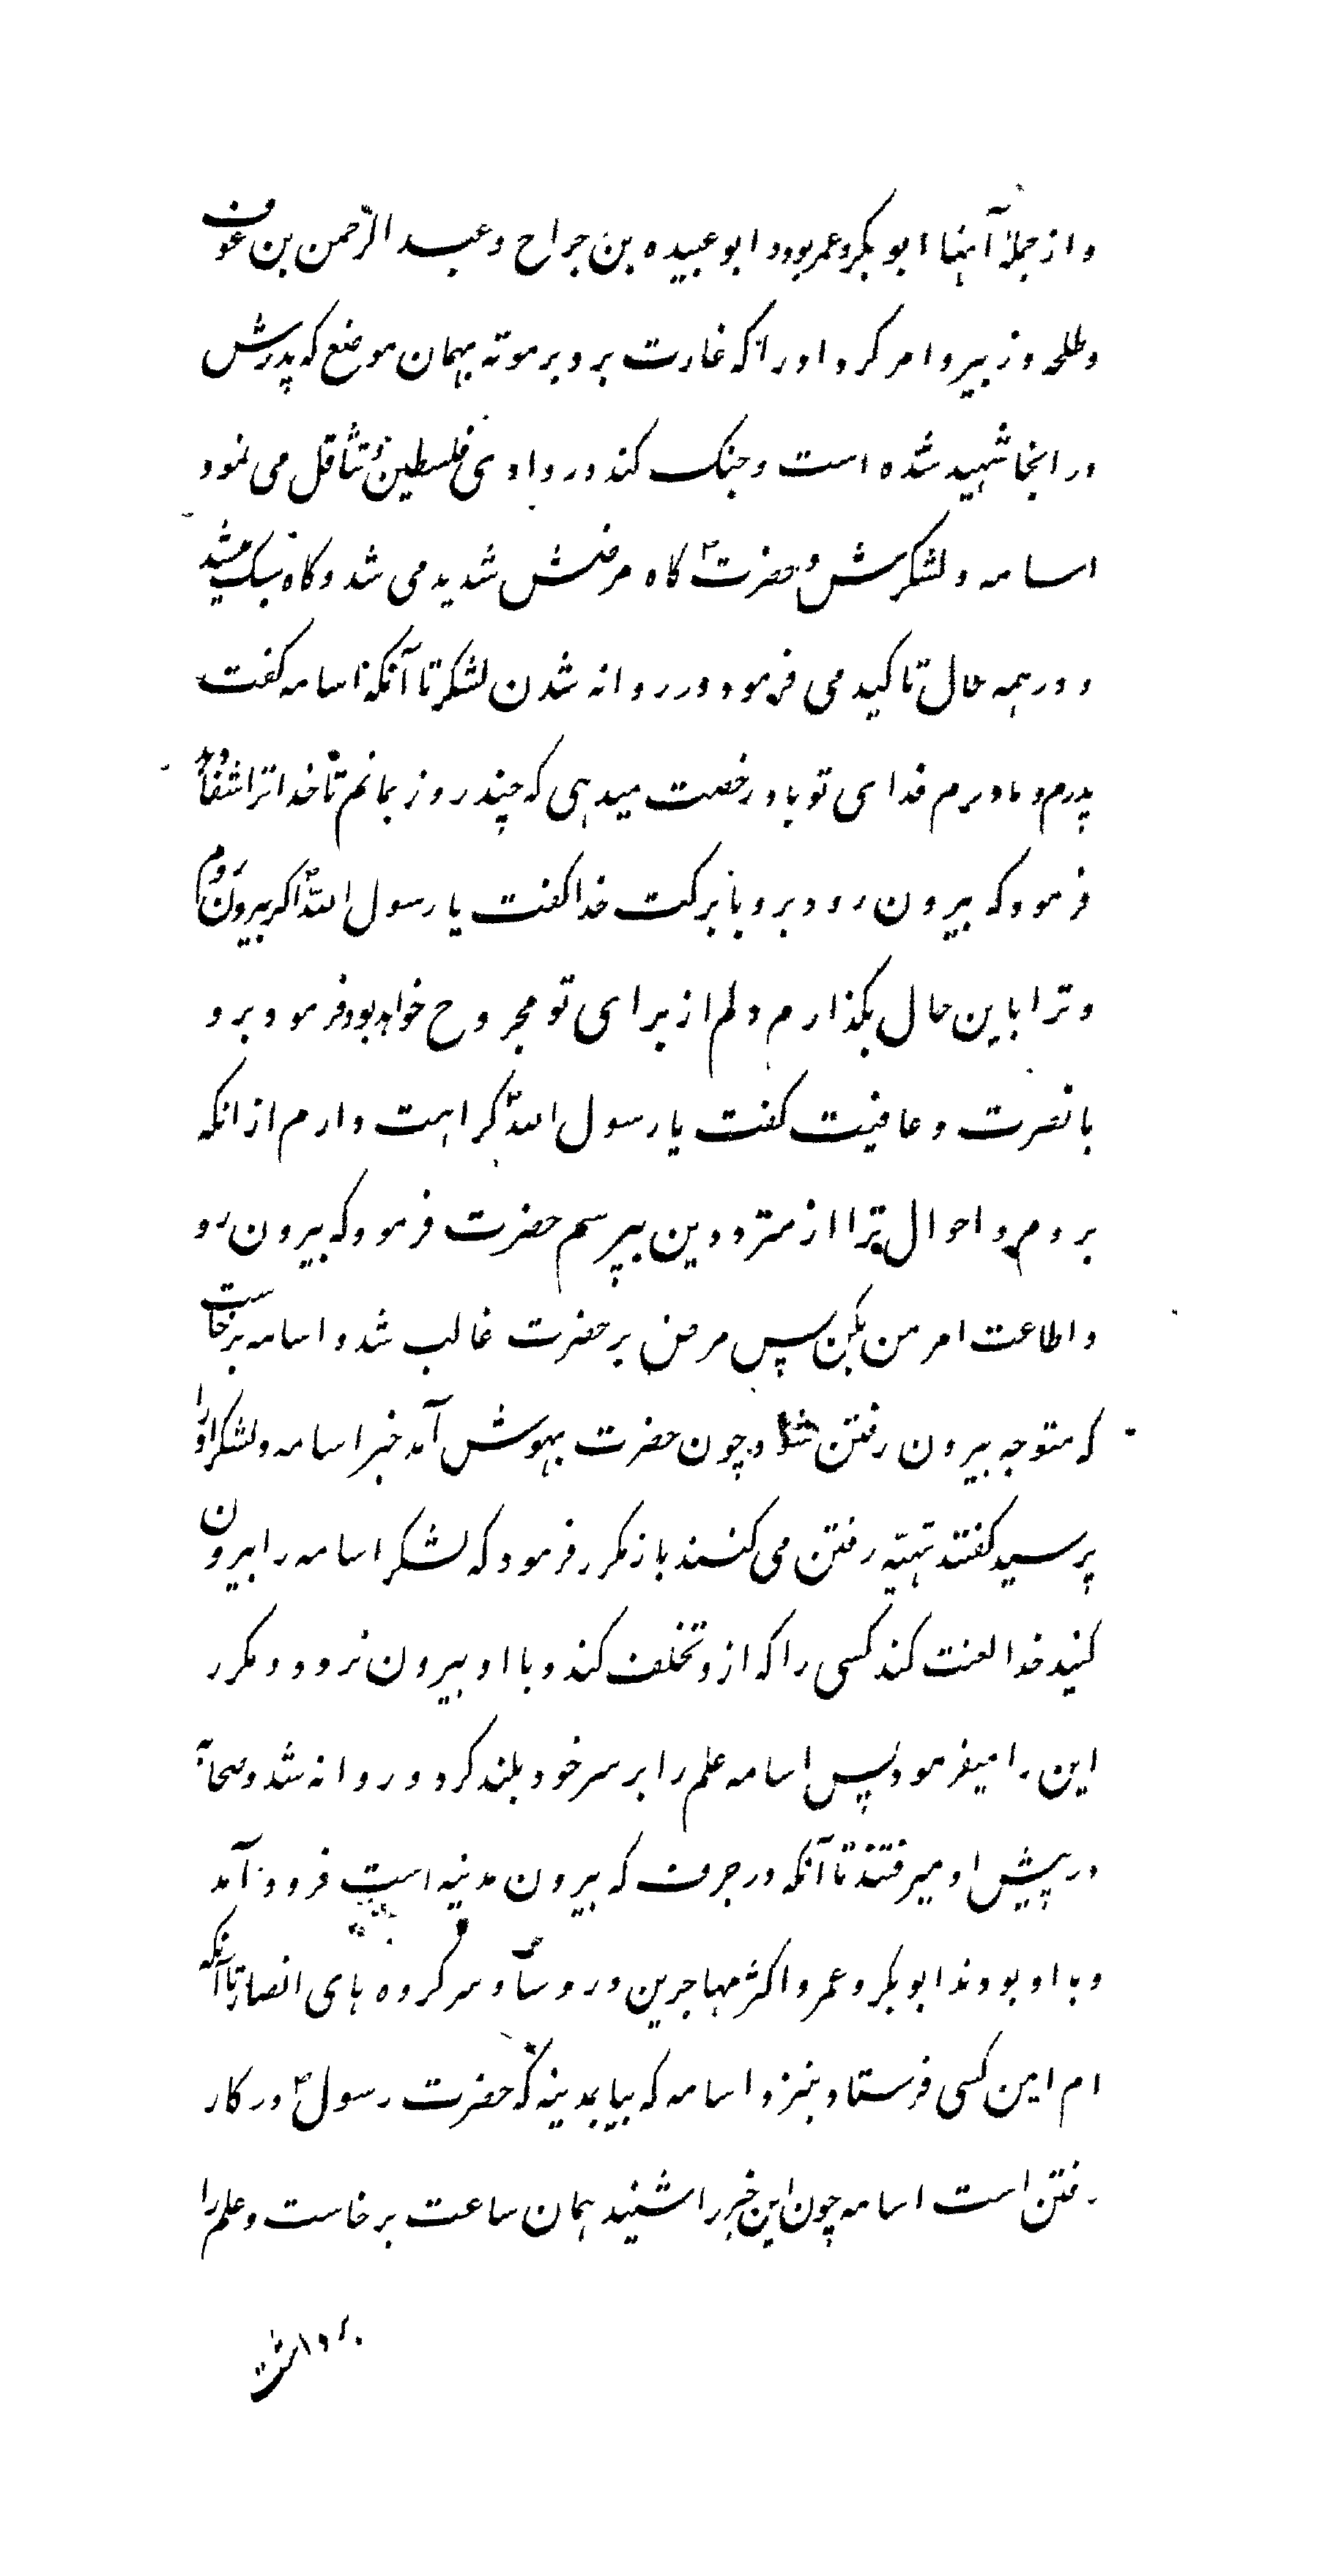 و از جملهٔ آنها ابو بکر و عمر بود و ابو عبیده بن جراح و عبد الرّحمن بن عوف
و طلحه و زبیر و امر کرد او را که غارت برد بر موته بهمان موضع که پدرش
در انجا شهید شده است و جنک کند در وادی فلسطین و تثاقل می نمود
اسامه و لشکرش و حضرت ؐ کاه مرضش شدید می شد و کاه سبک میشد
و در همه حال تاکید می فرمود در روانه شدن لشکر تا آنکه اسامه کفت
پدرم و مادرم فدای تو باد رخصت میدهی که چند روز بمانم تا خدا ترا شفا دهد
فرمود که بیرون رو و برو با برکت خدا کفت یا رسول اللّه ؐ اکر بیرون روم
و ترا باین حال بکذارم دلم از برای تو مجروح خواهد بود فرمود برو
با نصرت و عافیت کفت یا رسول اللّه کراهت دارم از انکه
بروم و احوال ترا از مترددین بپرسم حضرت فرمود که بیرون رو
و اطاعت امر من بکن پس مرض بر حضرت غالب شد و اسامه برخاست
که متوجه بیرون رفتن شد و چون حضرت بهوش آمد خبر اسامه و لشکر او را
پرسید کفتند تهیّه رفتن می کنند باز مکرر فرمود که لشکر اسامه را بیرون
کنید خدا لعنت کند کسی را که از و تخلف کند و با او بیرون نرود و مکرر
این را میفرمود پس اسامه علم را بر سر خود بلند کرد و روانه شد و صحابه
در پیش او میرفتند تا آنکه در جرف که بیرون مدینه است فرود آمد
و با او بودند ابو بکر و عمر و اکثر مهاجرین و رؤسا و سر کروه های انصار تا آنکه
ام ایمن کسی فرستاد بنزد اسامه که بیا بمدینه که حضرت رسول ؐ در کار
رفتن است اسامه چون این خبر را شنید همان ساعت برخاست و علم را
برداشت